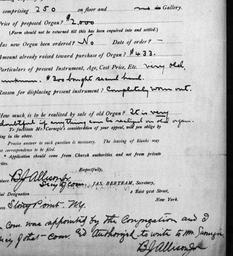 comprising 250 on floor and in Gallery.
Price of proposed Organ? $2,000
(Form should not be returned till this has been inquired into and settled.)
Has new Organ been ordered? No Date of order?
Amount already raised toward purchase of Organ? $433.
Particulars of present Instrument, Age, Cost Price, Etc. Very old,
unknown. $200 bought second hand.
Reason for displacing present instrument? Completely worn out.
How much is to be realized by sale of old Organ? It is very
doubtful if anything can be realized on old organ.
To facilitate Mr. Carnegie's consideration of your appeal, will you oblige
by filling in the above.
Precise answer to each question is necessary. The leaving of blanks may
correspondence to be filed.
Application should come from Church authorities and not from private
parties.
Respectfully,
B J Allison
JAS. BERTRAM, Secretary,
2 East 91st Street,
New York.
Stony Point
Com. was appointed by the Congregation and I
Com Ed Authorized to write to Mr Carnegie
B J Allison